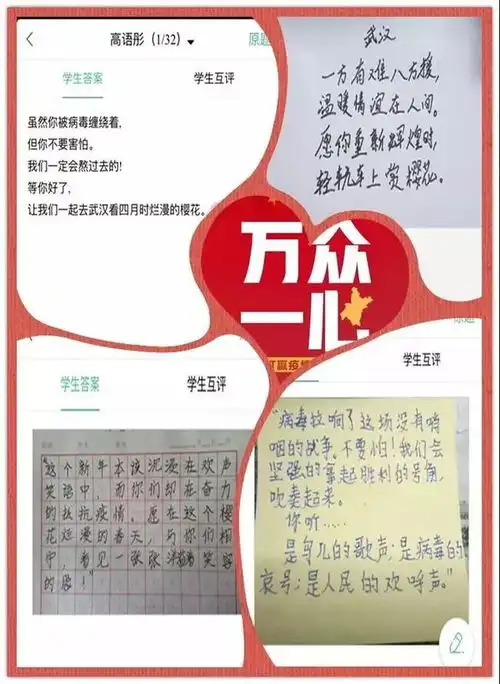 高语彤（1/32）
原题
学生答案
学生互评
虽然你被病毒缠绕着，
但你不要害怕。
我们一定会熬过去的！
等你好了，
让我们一起去武汉看四月时烂漫的樱花。
武汉
一方有难八方援，
温暖情谊在人间。
愿你重新辉煌时，
轻轨车上赏樱花。
万众
一心
打赢疫情
学生答案
学生互评
"这个新年本该沉浸在欢声
笑语中，而你们却在奋力
的抗疫情。愿在这个樱
花烂漫的春天，与你们相
守，看见一张张洋溢着笑容
的脸！"
学生互评
"病毒拉响了这场没有硝
烟的战争。不要怕！我们会
坚强的拿起胜利的号角，
吹奏起来。
你听……
是导儿的歌声；是病毒的
哀号；是人民的欢呼声。"